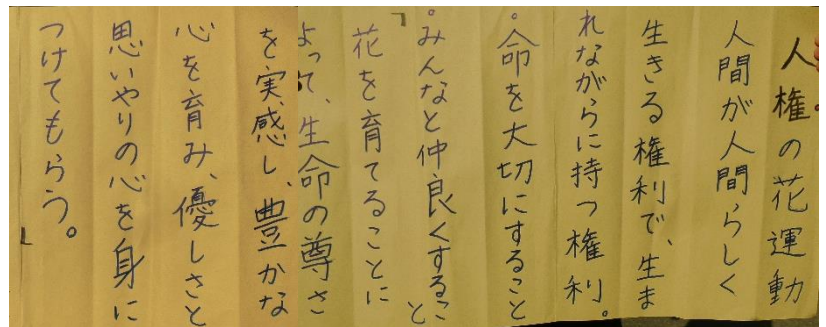 人権の花運動
人間が人間らしく
生きる権利で、生ま
れながらに持つ権利。
。命を大切にすること
。みんなと仲良くすること
花を育てることに
よって、生命の尊さ
を実感し、豊かな
心を育み、優しさと
思いやりの心を身に
つけてもらう。